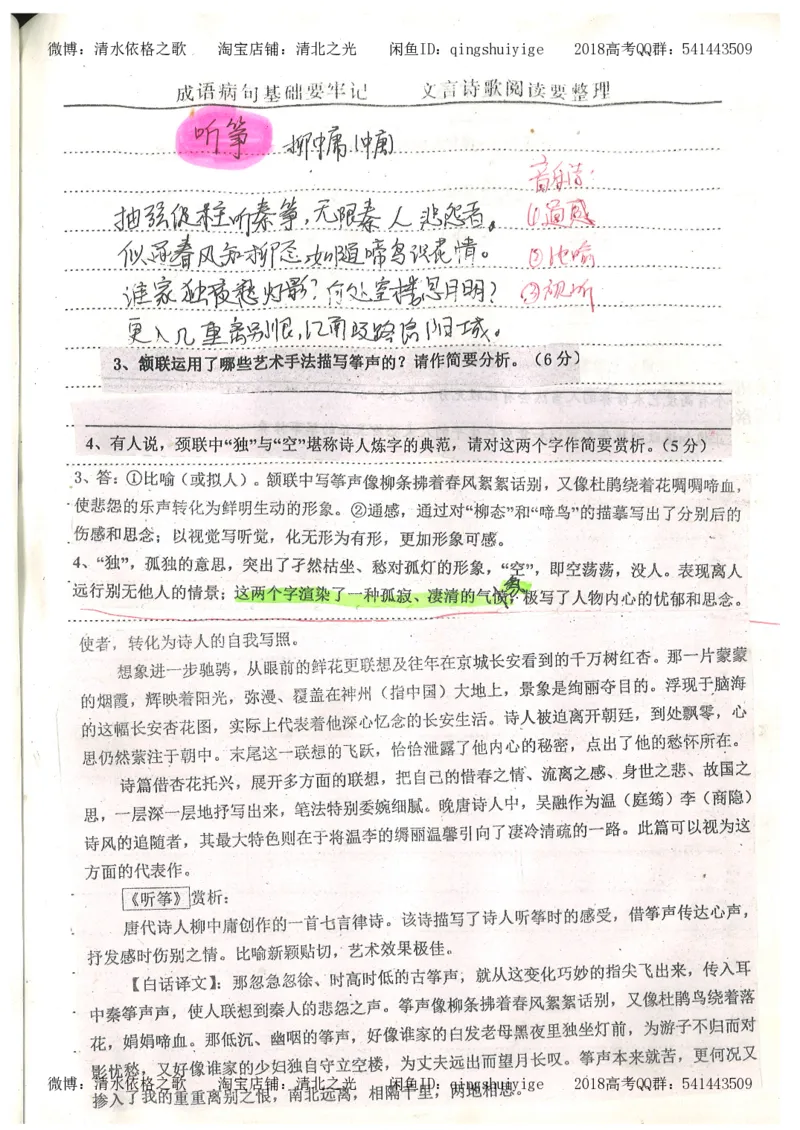 微博：清水依格之歌 淘宝店铺：清北之光 闲鱼ID：qingshuiyige 2018高考QQ群：541443509
成语病句基础要牢记 文言诗歌阅读要整理
听筝 柳中庸
音乐诗：
抽弦促柱听秦筝，无限秦人悲怨声。 ①通感
似逐春风知柳态，如随啼鸟识花情。 ②比喻
谁家独夜愁灯影？何处空楼思月明？ ③视听
更入几重离别恨，江南歧路洛阳城。
3、颔联运用了哪些艺术手法描写筝声的？请作简要分析。（6分）
4、有人说，颈联中“独”与“空”堪称诗人炼字的典范，请对这两个字作简要赏析。（5分）
3、答：①比喻（或拟人）。颔联中写筝声像柳条拂着春风絮絮话别，又像杜鹃绕着花啁啁啼血，
使悲怨的乐声转化为鲜明生动的形象。②通感，通过对“柳态”和“啼鸟”的描摹写出了分别后的
伤感和思念；以视觉写听觉，化无形为有形，更加形象可感。
4、“独”，孤独的意思，突出了孑然枯坐、愁对孤灯的形象，“空”，即空荡荡，没人。表现离人
远行别无他人的情景；这两个字渲染了一种孤寂、凄清的气氛，极写了人物内心的忧郁和思念。
使者，转化为诗人的自我写照。
想象进一步驰骋，从眼前的鲜花更联想及往年在京城长安看到的千万树红杏。那一片蒙蒙
的烟霞，辉映着阳光，弥漫、覆盖在神州（指中国）大地上，景象是绚丽夺目的。浮现于脑海
的这幅长安杏花图，实际上代表着他深心忆念的长安生活。诗人被迫离开朝廷，到处飘零，心
思仍然萦注于朝中。末尾这一联想的飞跃，恰恰泄露了他内心的秘密，点出了他的愁怀所在。
诗篇借杏花托兴，展开多方面的联想，把自己的惜春之情、流离之感、身世之悲、故国之
思，一层深一层地抒写出来，笔法特别委婉细腻。晚唐诗人中，吴融作为温（庭筠）李（商隐）
诗风的追随者，其最大特色则在于将温李的缛丽温馨引向了凄冷清疏的一路。此篇可以视为这
方面的代表作。
《听筝》赏析：
唐代诗人柳中庸创作的一首七言律诗。该诗描写了诗人听筝时的感受，借筝声传达心声，
抒发感时伤别之情。比喻新颖贴切，艺术效果极佳。
【白话译文】：那忽急忽徐、时高时低的古筝声，就从这变化巧妙的指尖飞出来，传入耳
中秦筝声声，使人联想到秦人的悲怨之声。筝声像柳条拂着春风絮絮话别，又像杜鹃鸟绕着落
花，娟娟啼血。那低沉、幽咽的筝声，好像谁家的白发老母黑夜里独坐灯前，为游子不归而对
影忧愁，又好像谁家的少妇独自守立空楼，为丈夫远出而望月长叹。筝声本来就苦，更何况又
微博：清水依格之歌 淘宝店铺：清北之光 闲鱼ID：qingshuiyige 2018高考QQ群：541443509
掺入了我的重重离别之恨，南北远离，相隔千里，两地相思。